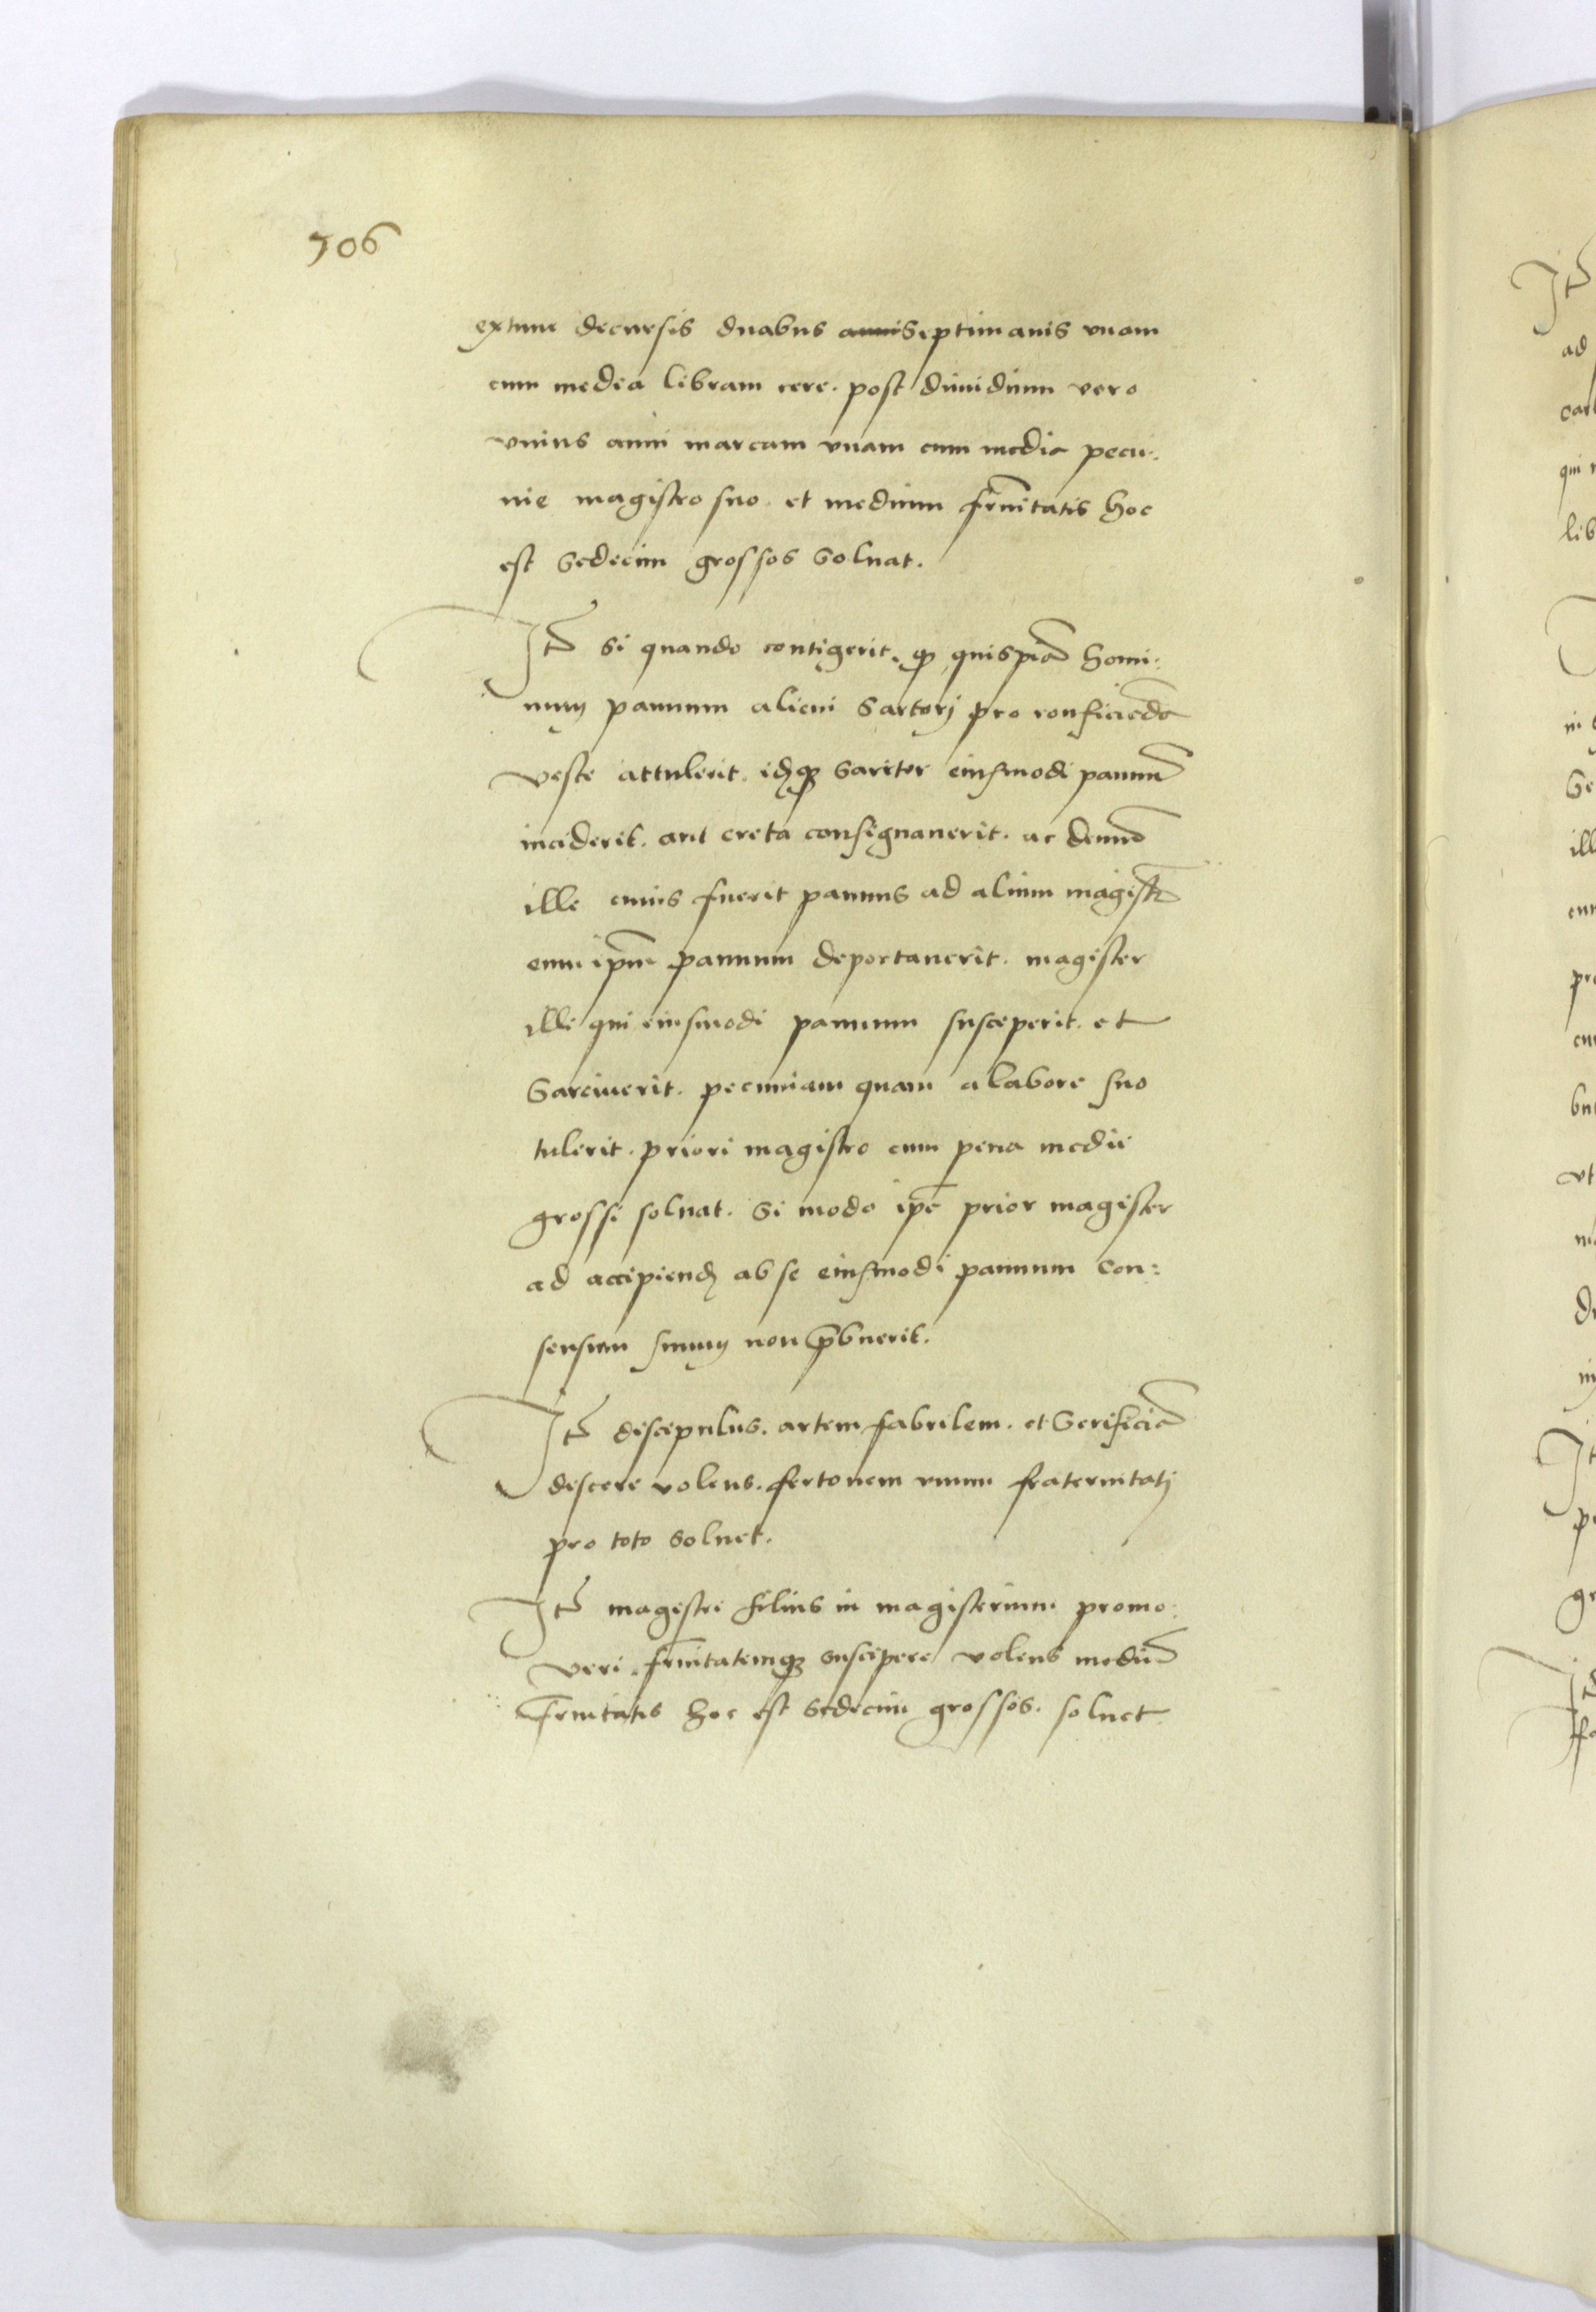 706
extunc decursis duabus anni septimanis unam
cum media libram cere. post dimidium vero
unius anni marcam unam cum media pecu-
nie magistro suo. et medium frnitatis hoc
est sedecim grossos solvat.
Itē si quando contigerit. qp quispiā homi:
num pannum alicui sartorj pro conficiēda
veste attulerit. idqʒ sarctor eiusmodi pannū
inciderit. aut creta consignaverit. ac demū
ille cuius fuerit pannus ad alium magistr̄
cum ipm̄ pannum deportaverit. magister
ille qui eiusmodi pannum susceperit. et
sarciverit. pecuniam quam a labore suo
tulerit. priori magistro cum pena medii
grossi solvat. si modo ipē prior magister
ad accipiend ab se eiusmodi pannum con:
sensum suum non p̄buerit.
Itē discipulus. artem fabrilem. et serificiā
discere volens. fertonem unum fraternitatj
pro toto solvet.
Itē magistri filius in magisterium promo:
veri. fr̄nitatemqʒ suscipere volens mediū
fr̄nitatis hoc est sedecim grossos. solvet
Itē
ad
qui
lib
in
ill
pro
ut